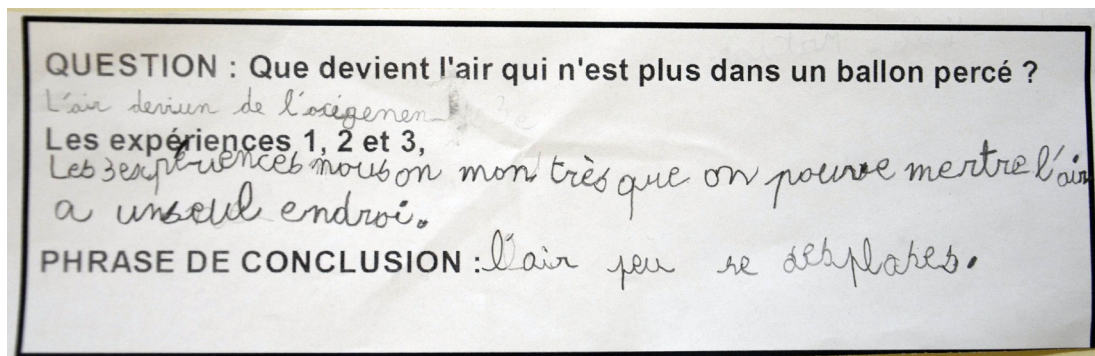 QUESTION : Que devient l'air qui n'est plus dans un ballon percé ?
L'air deviun de l'oxégenen
Les expériences 1, 2 et 3,
Les 3 expériences nous on mon très que on pouve mertre l'air
a un seul endroi.
PHRASE DE CONCLUSION : l'air peu se desplases.